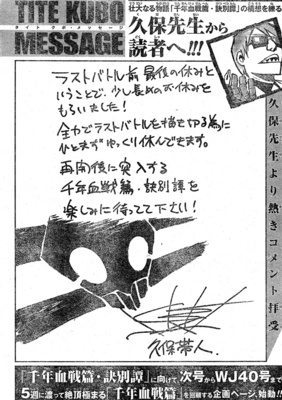 TITE KUBO
タイト クボ・メッセージ
MESSAGE
壮大なる物語「千年血戦篇・訣別譚」の構想を練る
久保先生から
読者へ!!!
久保先生より熱きコメント拝受
ラストバトル前最後の休みと
いうことで、少し長めのお休みを
もらいました!
全力でラストバトルを描き切る為に
ひとまずゆっくり休んできます。
再開後に突入する
千年血戦篇・訣別譚を
楽しみに待ってて下さい!
久保帯人.
「千年血戦篇・訣別譚」に向けて
次号からWJ40号まで
5週に渡って絶頂極まる「千年血戦篇」を回顧する企画ページ、始動!!